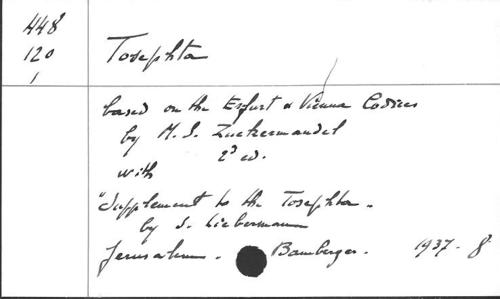 448²
120
1
Tosephta
based on the Erfurt & Vienna Codices
by M. S. Zuckermandel
2ᵈ ed.
with
"Supplement to the Tosephta.
by S. Liebermann
Jerusalem. Bamberger. 1937. 8°